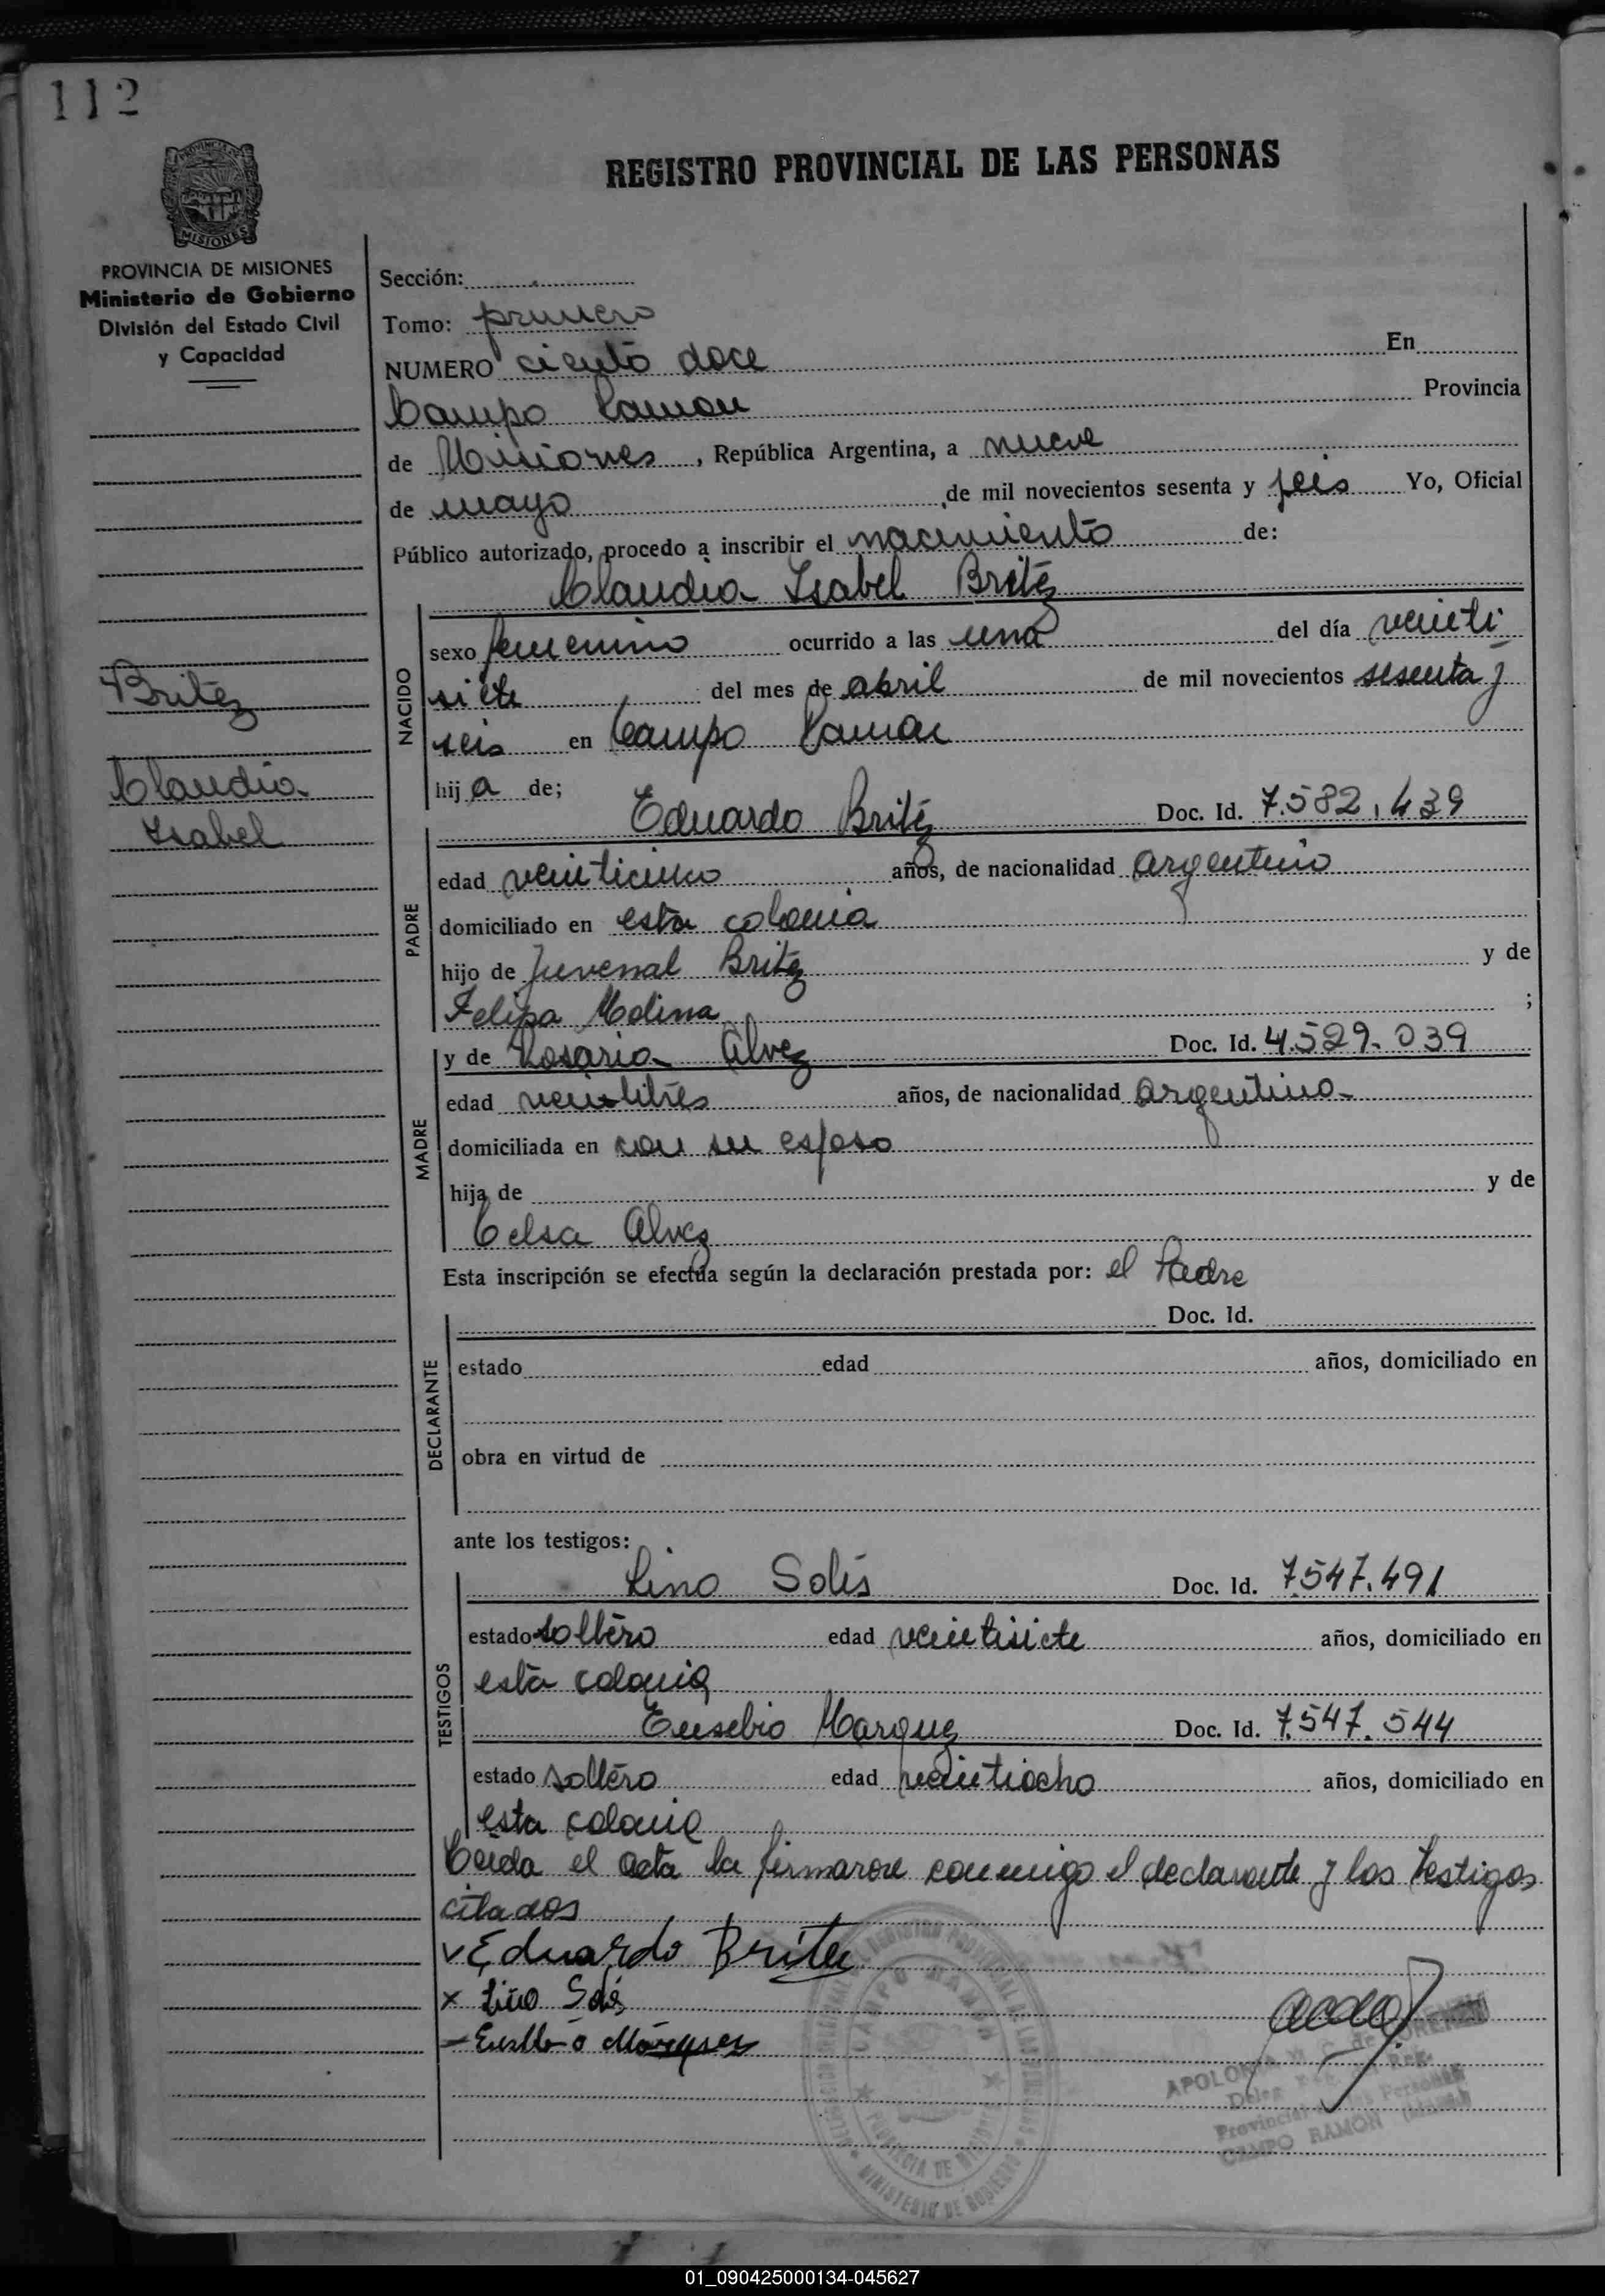 112
REGISTRO PROVINCIAL DE LAS PERSONAS
MISIONES
PROVINCIA DE MISIONES
Ministerio de Gobierno
División del Estado Civil
y Capacidad
Sección:
Tomo: primero
NUMERO ciento doce En
Campo Ramon Provincia
de Misiones, República Argentina, a nueve
de mayo de mil novecientos sesenta y seis Yo, Oficial
Público autorizado, procedo a inscribir el nacimiento de:
Claudia Isabel Britez
NACIDO
sexo femenino ocurrido a las una del día veinti
siete del mes de abril de mil novecientos sesenta y
seis en Campo Ramon
hija de;
Britez
Claudia
Isabel
PADRE
Eduardo Britez Doc. Id. 7.582.439
edad veinticinco años, de nacionalidad argentino
domiciliado en esta colonia
hijo de Juvenal Britez y de
Felipa Molina ;
MADRE
y de Rosario Alvez Doc. Id. 4.529.039
edad veintitres años, de nacionalidad argentina
domiciliada en con su esposo
hija de y de
Celsa Alvez
Esta inscripción se efectúa según la declaración prestada por: el Padre
DECLARANTE
Doc. Id.
estado edad años, domiciliado en
obra en virtud de
ante los testigos:
TESTIGOS
Lino Solís Doc. Id. 7.547.491
estado soltero edad veintisiete años, domiciliado en
esta colonia
Eusebio Marquez Doc. Id. 7.547.544
estado soltero edad veintiocho años, domiciliado en
esta colonia
Leida el acta la firmaron conmigo el declarante y los testigos
citados
Eduardo Britez
x Lino Solis
CAMPO RAMON
PROVINCIA DE MISIONES
MINISTERIO DE GOBIERNO
CAMPO RAMON
01_090425000134-045627